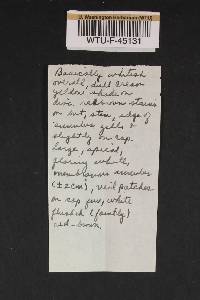 U. Washington Herbarium (WTU)
WTU-F-45131
Basically whitish
overall, dull cream
yellow shade on
disc. red-brown stains
on cut, stem, edge of
annulus gills &
slightly on cap.
Large, apical,
flaring white,
membranous annulus
(±2cm), veil patches
on cap juv, white
flesh (faintly)
red-brown.